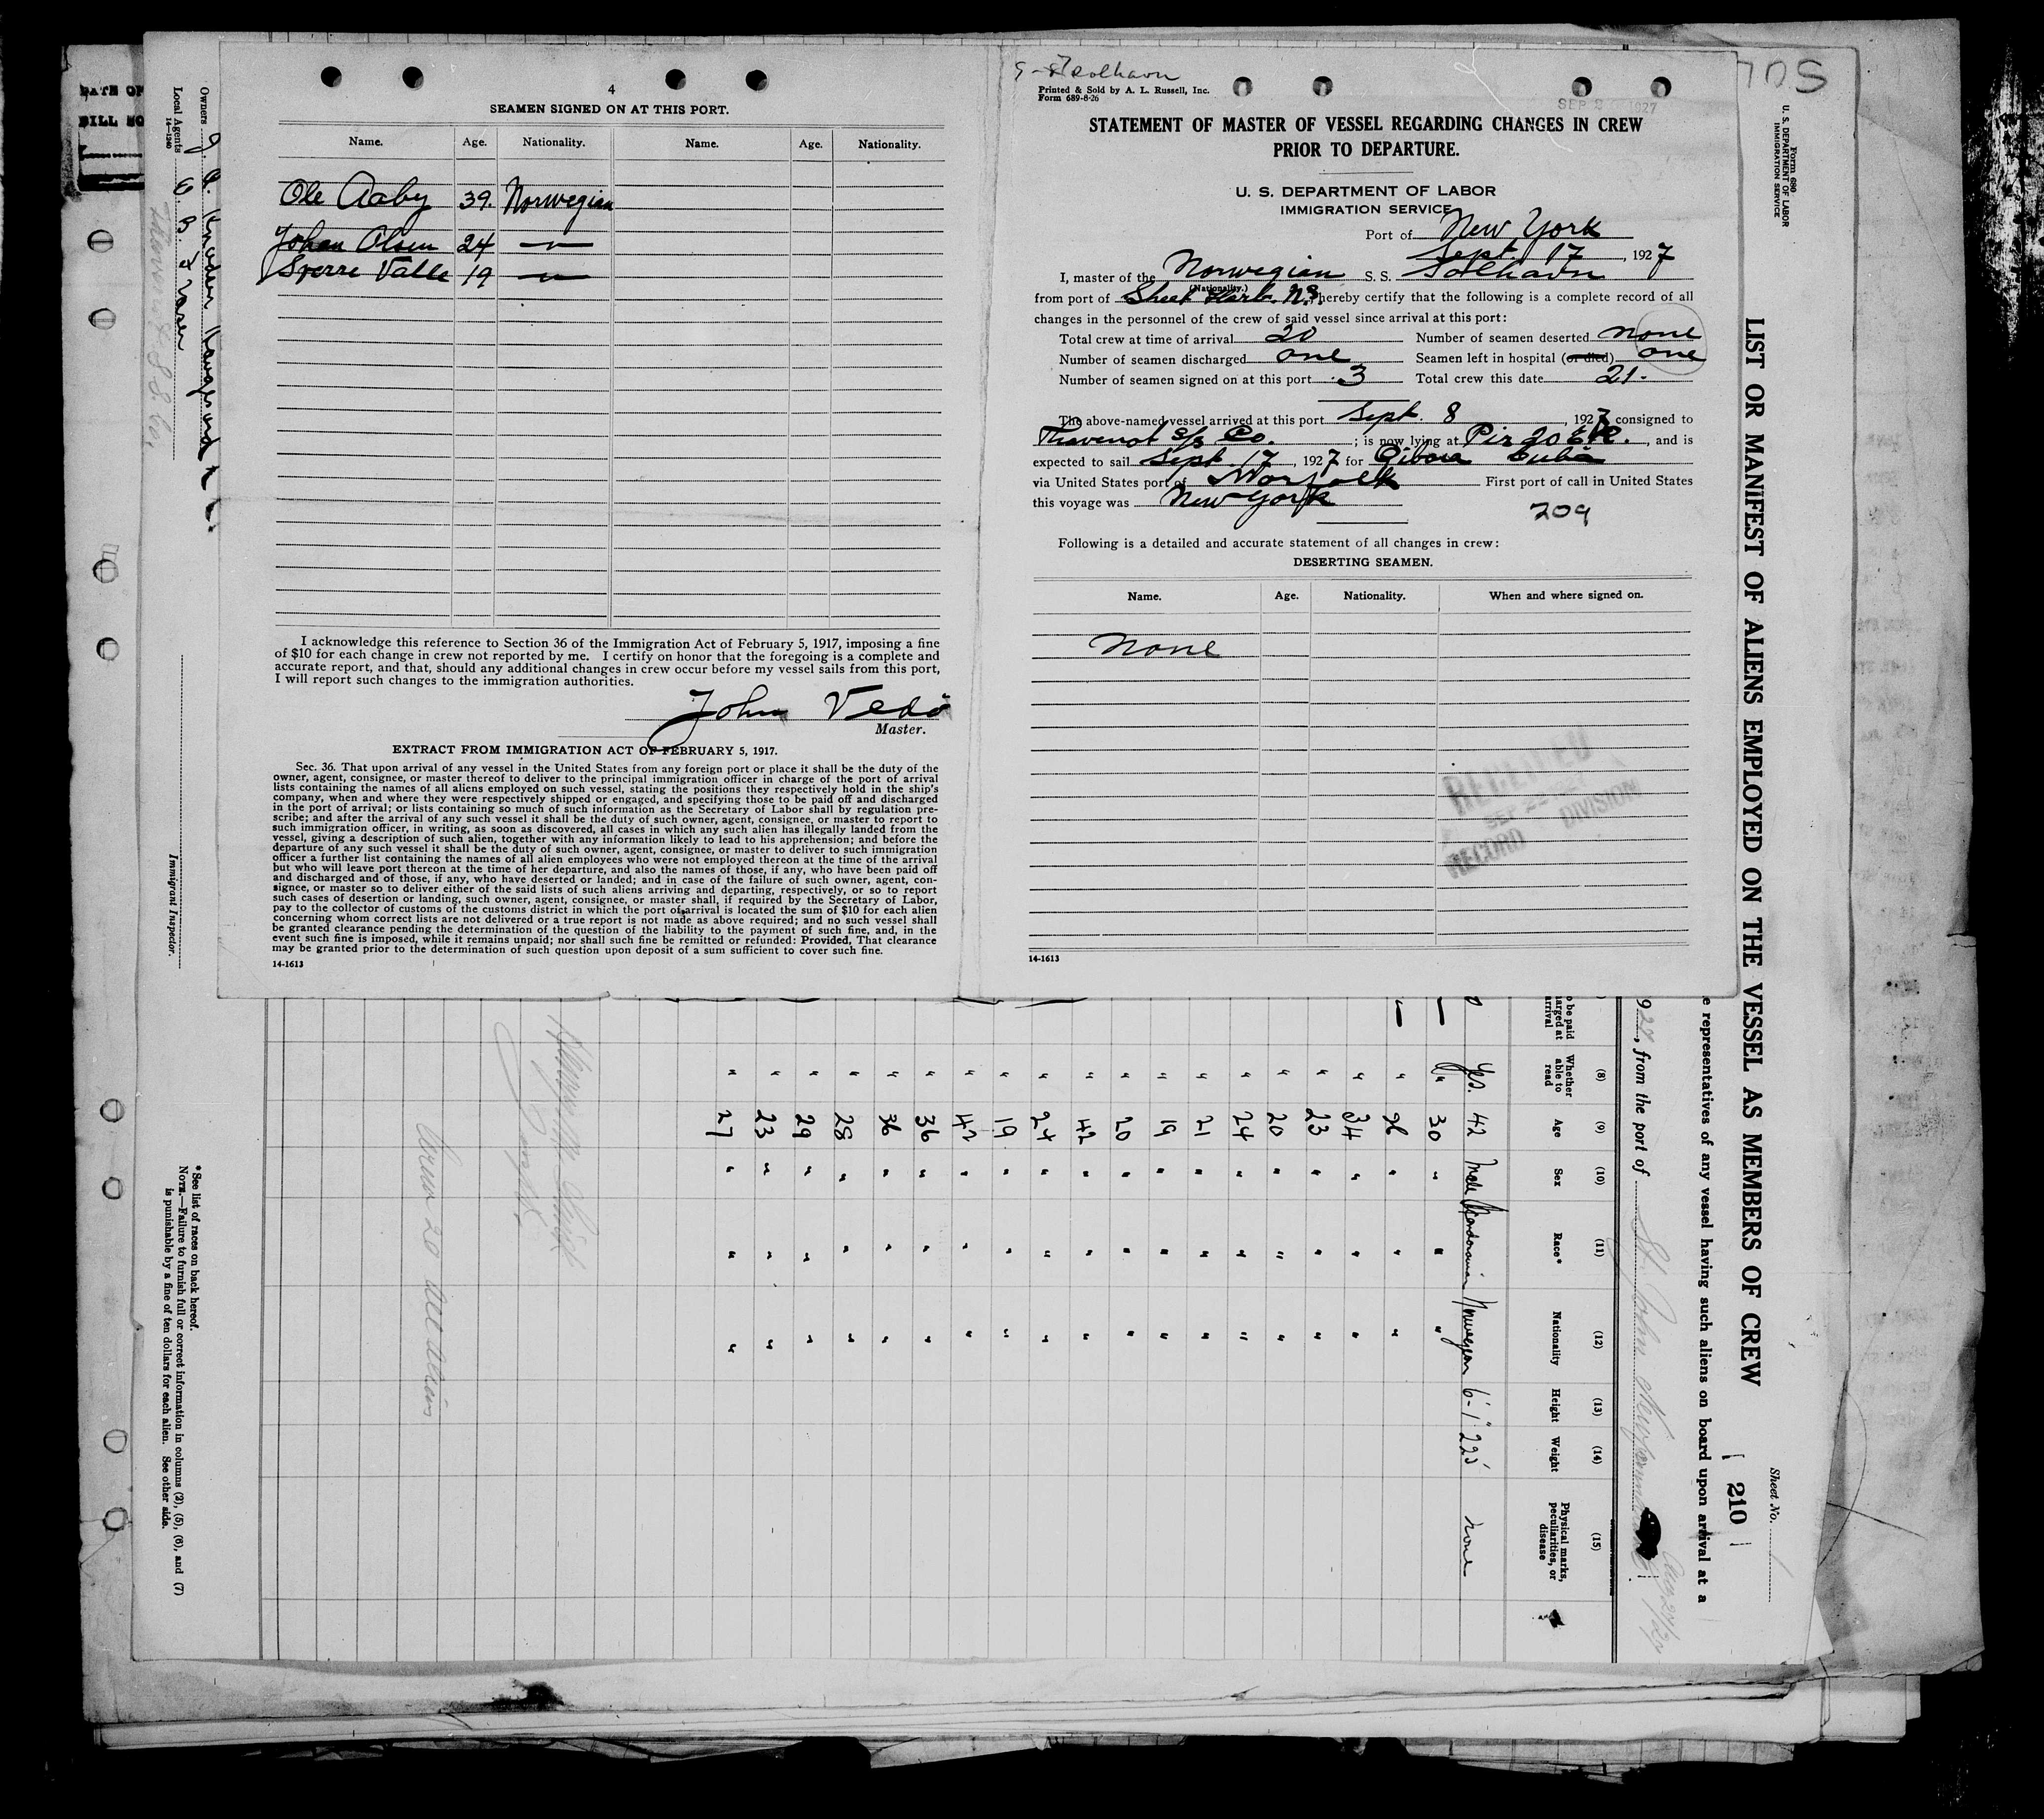 4
SEAMEN SIGNED ON AT THIS PORT.
Name. Age. Nationality. Name. Age. Nationality.
Ole Aaby 39. Norwegian
Johan Olsen 24 —"—
Sverre Valle 19 —"—
I acknowledge this reference to Section 36 of the Immigration Act of February 5, 1917, imposing a fine
of $10 for each change in crew not reported by me. I certify on honor that the foregoing is a complete and
accurate report, and that, should any additional changes in crew occur before my vessel sails from this port,
I will report such changes to the immigration authorities.
John Vedö
Master.
EXTRACT FROM IMMIGRATION ACT OF FEBRUARY 5, 1917.
Sec. 36. That upon arrival of any vessel in the United States from any foreign port or place it shall be the duty of the
owner, agent, consignee, or master thereof to deliver to the principal immigration officer in charge of the port of arrival
lists containing the names of all aliens employed on such vessel, stating the positions they respectively hold in the ship's
company, when and where they were respectively shipped or engaged, and specifying those to be paid off and discharged
in the port of arrival; or lists containing so much of such information as the Secretary of Labor shall by regulation pre-
scribe; and after the arrival of any such vessel it shall be the duty of such owner, agent, consignee, or master to report to
such immigration officer, in writing, as soon as discovered, all cases in which any such alien has illegally landed from the
vessel, giving a description of such alien, together with any information likely to lead to his apprehension; and before the
departure of any such vessel it shall be the duty of such owner, agent, consignee, or master to deliver to such immigration
officer a further list containing the names of all alien employees who were not employed thereon at the time of the arrival
but who will leave port thereon at the time of her departure, and also the names of those, if any, who have been paid off
and discharged and of those, if any, who have deserted or landed; and in case of the failure of such owner, agent, con-
signee, or master so to deliver either of the said lists of such aliens arriving and departing, respectively, or so to report
such cases of desertion or landing, such owner, agent, consignee, or master shall, if required by the Secretary of Labor,
pay to the collector of customs of the customs district in which the port of arrival is located the sum of $10 for each alien
concerning whom correct lists are not delivered or a true report is not made as above required; and no such vessel shall
be granted clearance pending the determination of the question of the liability to the payment of such fine, and, in the
event such fine is imposed, while it remains unpaid; nor shall such fine be remitted or refunded: Provided, That clearance
may be granted prior to the determination of such question upon deposit of a sum sufficient to cover such fine.
14-1613
Solhavn
Printed & Sold by A. L. Russell, Inc.
Form 689-8-26
SEP 1927
STATEMENT OF MASTER OF VESSEL REGARDING CHANGES IN CREW
PRIOR TO DEPARTURE.
U. S. DEPARTMENT OF LABOR
IMMIGRATION SERVICE
Port of New York
Sept. 17, 1927
I, master of the Norwegian S. S. Solhavn
(Nationality.)
from port of Sheet Harb. N.S. hereby certify that the following is a complete record of all
changes in the personnel of the crew of said vessel since arrival at this port:
Total crew at time of arrival 20 Number of seamen deserted none
Number of seamen discharged one Seamen left in hospital (or died) one
Number of seamen signed on at this port 3 Total crew this date 21.
The above-named vessel arrived at this port Sept. 8, 1927 consigned to
Thavenot S/S Co.; is now lying at Pir 20 E.R., and is
expected to sail Sept. 17, 1927 for Gibara Cuba
via United States port of Norfolk First port of call in United States
this voyage was New York
209
Following is a detailed and accurate statement of all changes in crew:
DESERTING SEAMEN.
Name. Age. Nationality. When and where signed on.
None
RECEIVED
SEP 22
RECORD DIVISION
14-1613
705
Form 680
U. S. DEPARTMENT OF LABOR
IMMIGRATION SERVICE
LIST OR MANIFEST OF ALIENS EMPLOYED ON THE VESSEL AS MEMBERS OF CREW
210
Sheet No.
e representatives of any vessel having such aliens on board upon arrival at a
927, from the port of St. John
(8) (9) (10) (11) (12) (13) (14) (15)
Whether able to read Age Sex Race* Nationality Height Weight Physical marks, peculiarities, or disease
yes. 42 Male Norwegian 6'-1" 225 none
" 30 " " "
" 26 " " "
" 34 " " "
" 23 " " "
" 20 " " "
" 24 " " "
" 21 " " "
" 19 " " "
" 20 " " "
" 42 " " "
" 24 " " "
" 19 " " "
" 42 " " "
" 36 " " "
" 36 " " "
" 28 " " "
" 29 " " "
" 23 " " "
" 27 " " "
Crew 20 all aliens
*See list of races on back hereof.
NOTE.—Failure to furnish full or correct information in columns (2), (5), (6), and (7)
is punishable by a fine of ten dollars for each alien. See other side.
Immigrant Inspector.
Owners
Local Agents
14-1240
DATE OF